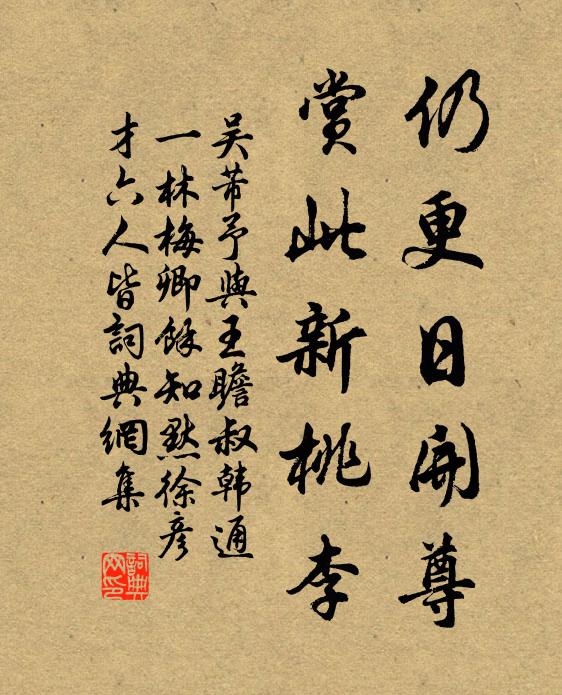 仍更日開尊
賞此新桃李
吴芾予與王瞻叔韩通
一林梅卿餘知默徐彦
才六人皆詞典網集
詞典网印